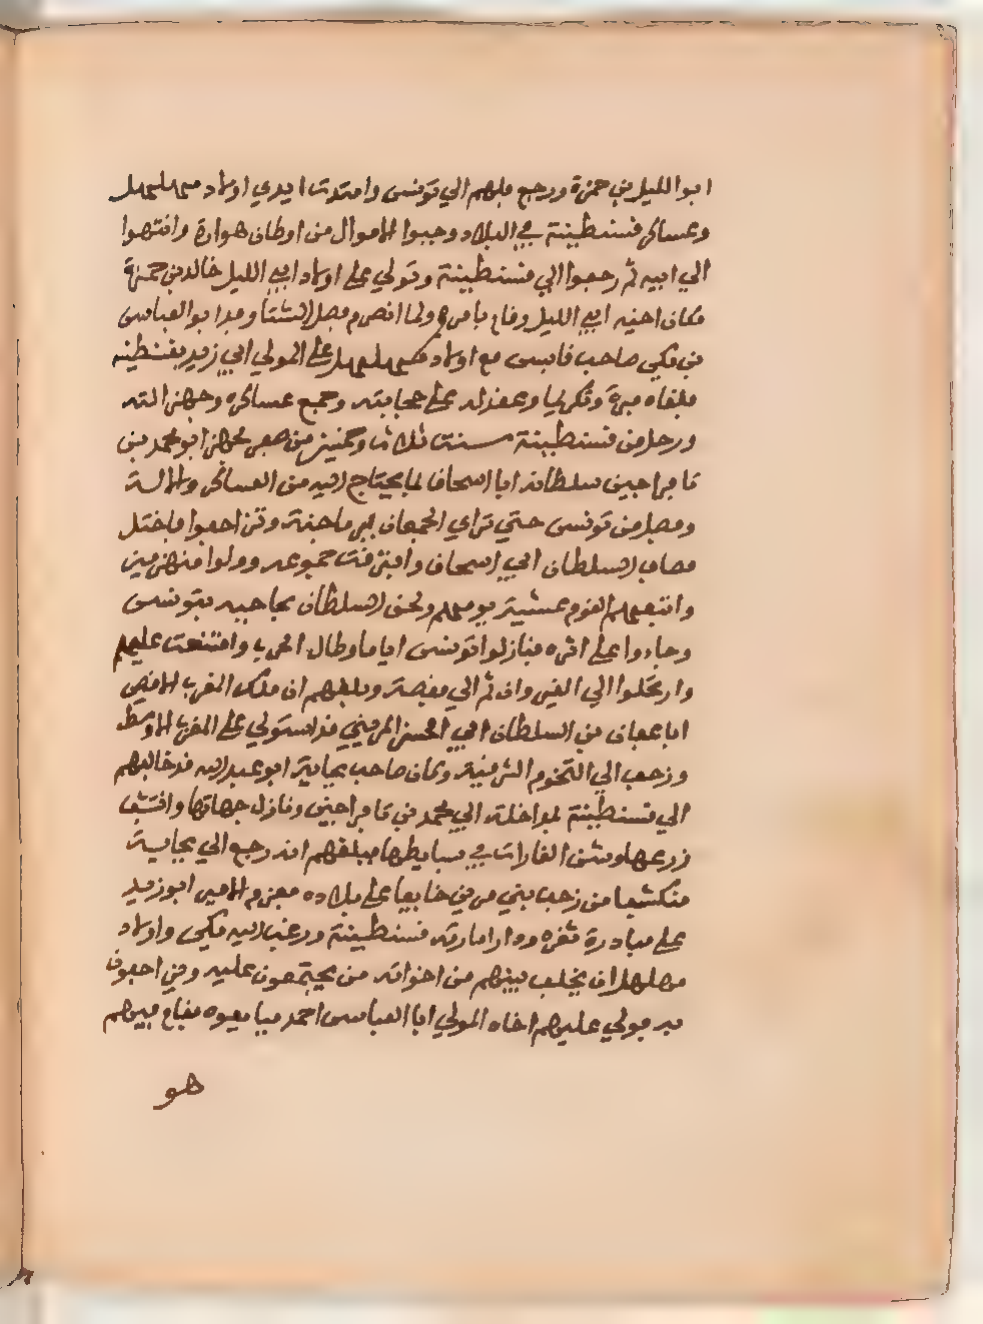 ابو الليل بن حمزة ورجع فلهم الي تونس وامتدت ايدي اولاد مهلهل
وعساكر قسنطينة في البلاد وجبوا الاموال من اوطان هوارة وانتهوا
الي ابيه ثم رجعوا الي قسنطينة وتولي علي اولاد ابي الليل خالد بن حمزة
مكان اخيه ابي الليل وقام بامره ولما انصرم فصل الشتا وفد ابو العباس
بن مكي صاحب قابس مع اولاد مهلهل علي المولي ابي زيد بقسنطينه
فلقاه مبرة وتكريما وعقد له علي حجابته وجمع عساكره وجهز الته
ورحل من قسنطينة سنة ثلاث وخمسين من صفر فجهز ابو محمد بن
تافراجين سلطانه ابا اسحاق لما يحتاج اليه من العساكر والالة
وفصل من تونس حتي تراي الجمعان بمرماجنة وتزاحفوا فاختل
مصاف السلطان ابي اسحاق وافترقت جموعه وولوا منهزمين
واتبعهم القوم عشية يومهم ولحق السلطان بحاجبه بتونس
وجاءوا علي اثره فنازلوا تونس اياما وطال الحرب وامتنعت عليهم
وارتحلوا الي القيروان ثم الي قفصة وبلغهم ان ملك المغرب الاقصي
ابا عنان بن السلطان ابي الحسن المريني قد استولي علي المغرب الاوسط
وزحف الي التخوم الشرقية وكان صاحب بجاية ابو عبد الله قد خالفهم
الي قسنطينة لمداخلة ابي محمد بن تافراجين ونازل جهاتها وانتسف
زرعها وشن الغارات في بسايطها فبلغهم انه رجع الي بجاية
منكشفا من زحف بني مرين خايفا علي بلاده فعزم الامير ابو زيد
علي مبادرة ثغره ودار امارته قسنطينة ورغب اليه مكي واولاد
مهلهل ان يخلف بينهم من اخوانه من يجتمعون عليه ويزاحفون
به فولي عليهم اخاه المولي ابا العباس احمد فبايعوه فقام فيهم
هو